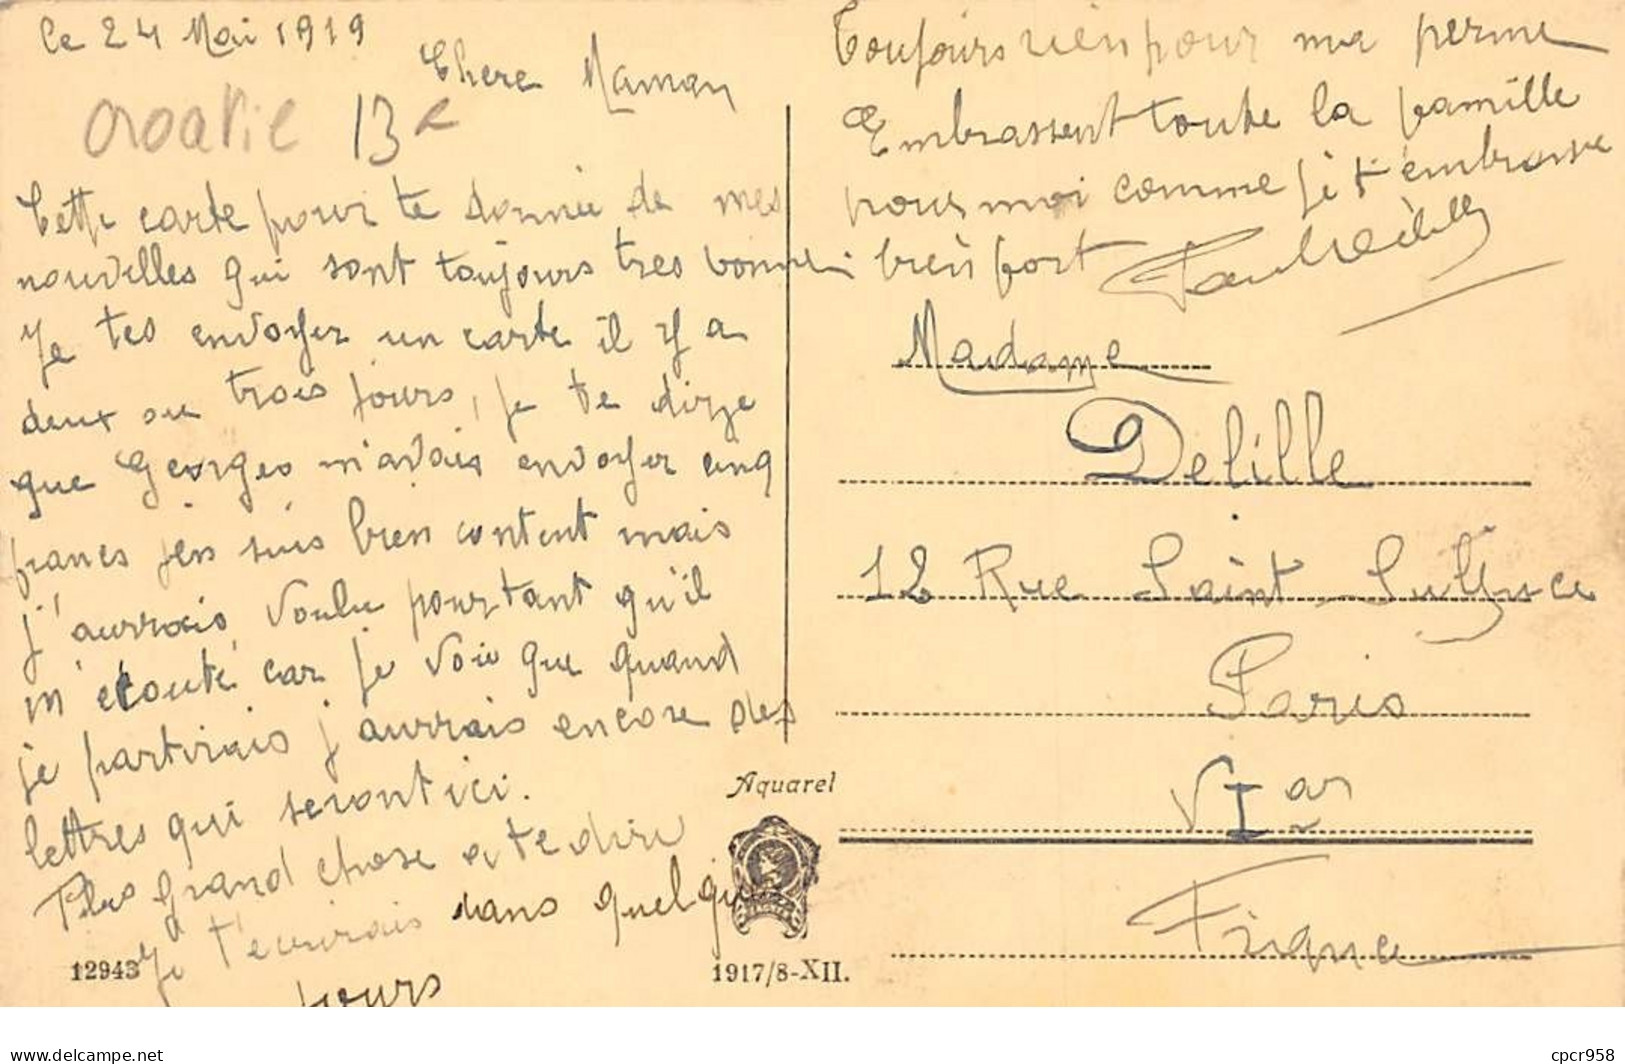 Le 24 Mai 1919
Chere Maman
croatie 13 €
Cette carte pour te donnée de mes
nouvelles qui sont toujours tres bonne
Je tes envoyer un carte il y a
deux ou trois jours, je te dize
que Georges m'avais envoyer cinq
francs j'en suis bien content mais
j'aurrais voulu pourtant qu'il
m'écouté car je voie que quand
je partirais j'aurrais encore des
lettres qui seront ici.
Plus grand chose a te dire
Je t'ecrirais dans quelque
jours
Toujours rien pour ma perme
Embrassent toute la famille
pour moi comme je t'embrasse
bien fort
Madame
Delille
12 Rue Saint-Sulpice
Paris
VI ar
France
Aquarel
12943
1917/8-XII.
cpcr958
delcampe.net